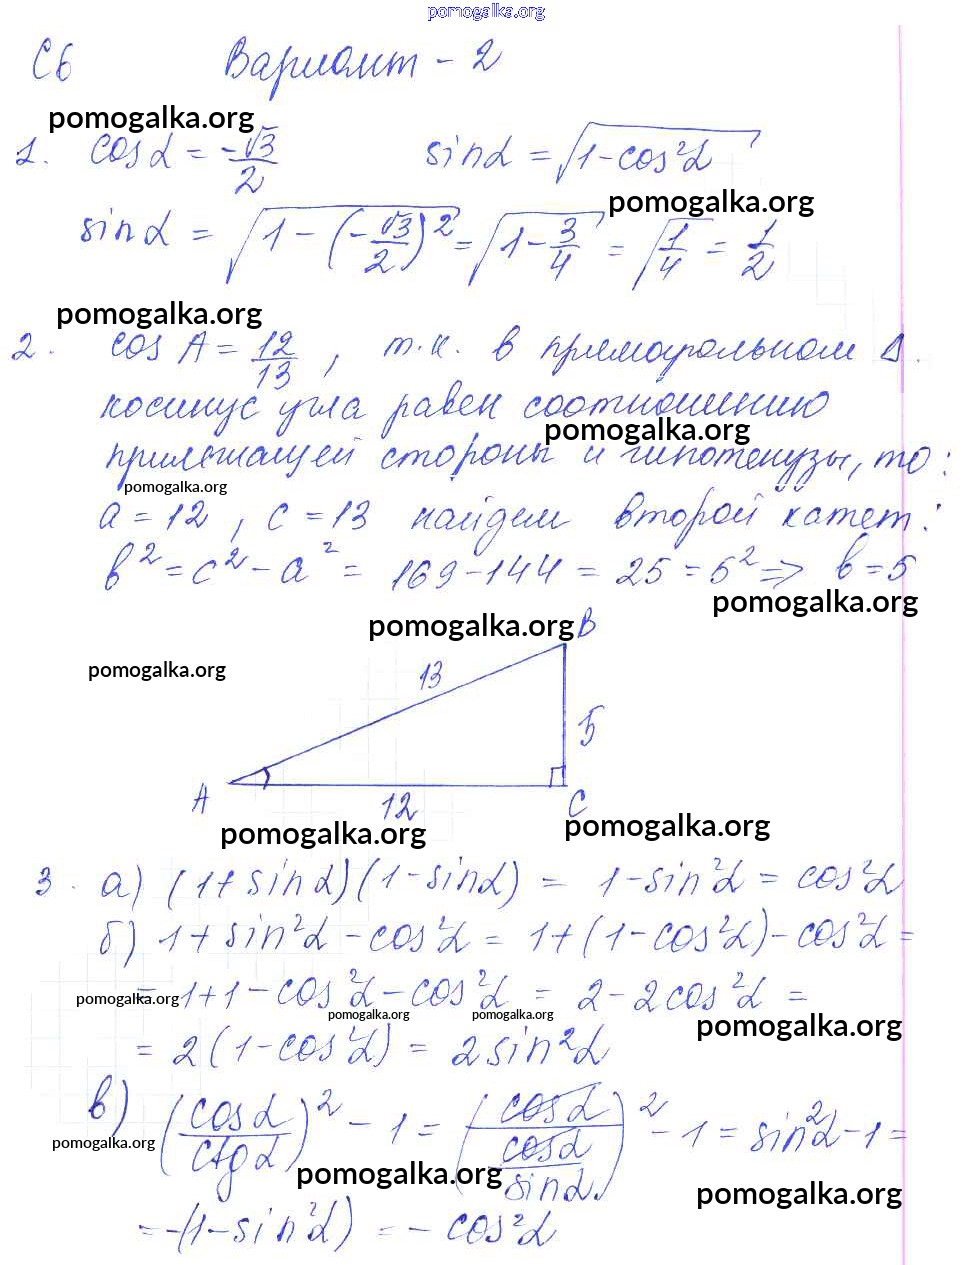 pomogalka.org
С6 Вариант - 2
pomogalka.org
1. cos α = -√3/2 sin α = √(1-cos²α)
pomogalka.org
sin α = √(1-(-√3/2)²) = √(1-3/4) = √(1/4) = 1/2
pomogalka.org
2. cos A = 12/13, т.к. в прямоугольном Δ
косинус угла равен соотношению
pomogalka.org
прилежащей стороны и гипотенузы, то:
pomogalka.org
a = 12, c = 13 найдем второй катет:
b² = c² - a² = 169 - 144 = 25 = 5² => b = 5
pomogalka.org
pomogalka.org B
pomogalka.org
13
5
A 12 C
pomogalka.org pomogalka.org
3. а) (1+sin α)(1-sin α) = 1-sin²α = cos²α
б) 1+sin²α-cos²α = 1+(1-cos²α)-cos²α =
= 1+1-cos²α-cos²α = 2-2cos²α =
pomogalka.org pomogalka.org pomogalka.org pomogalka.org
= 2(1-cos²α) = 2sin²α
в) (cos α/ctg α)² - 1 = (cos α/(cos α/sin α))² - 1 = sin²α-1 =
pomogalka.org pomogalka.org pomogalka.org
= -(1-sin²α) = -cos²α